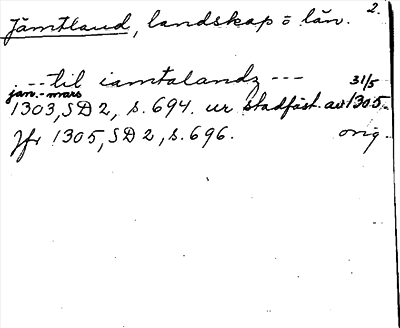 2.
Jämtland, landskap o län.
--- til iamtalandz ---
31/5
jan.-mars
1303, SD 2, s. 694. ur stadfäst. av 1305.
Jfr 1305, SD 2, s. 696. orig.